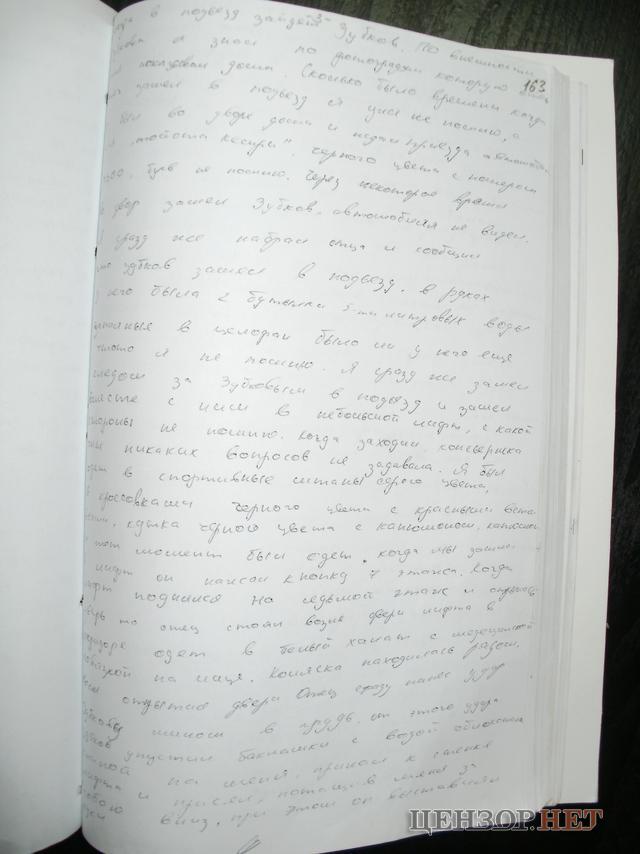 в подъезд зайдет Зубков. По внешности
я знал по фотографии которую
показывал дома. Сколько было времени когда
163
зашел в подъезд я уже не помню, а
во дворе дома и ждал приезда автомобиля
"тойота кемри" черного цвета с номером
букв не помню. Через некоторое время
двор зашел Зубков, автомобиля не видел.
сразу же набрал отца и сообщил
что Зубков зашел в подъезд. в руках
у него была 2 бутылки 5-ти литровых воды
в целофан было ли у него еще
что-то я не помню. Я сразу же зашел
следом за Зубковым в подъезд и зашел
вместе с ним в небольшой лифт, с какой
стороны не помню. Когда заходил консьержка
никаких вопросов не задавала. Я был
одет в спортивные штаны серого цвета,
кроссовками черного цвета с красными
куртка черного цвета с капюшоном, капюшон
тот момент был одет. когда мы зашли
лифт он нажал кнопку 7 этажа. Когда
лифт поднялся на седьмой этаж и
дверь то отец стоял возле двери лифта в
коридоре одет в белый халат с медецинской
повязкой на лице. Коляска находилась рядом.
открытия двери Отец сразу нанес удар
Зубкову в грудь. от этого удара
Зубков упустил баклашки с водой
на меня, прижал к стенке
лифта и присел, потащив меня за
собою вниз, при этом он выставил
ЦЕНЗОР.НЕТ